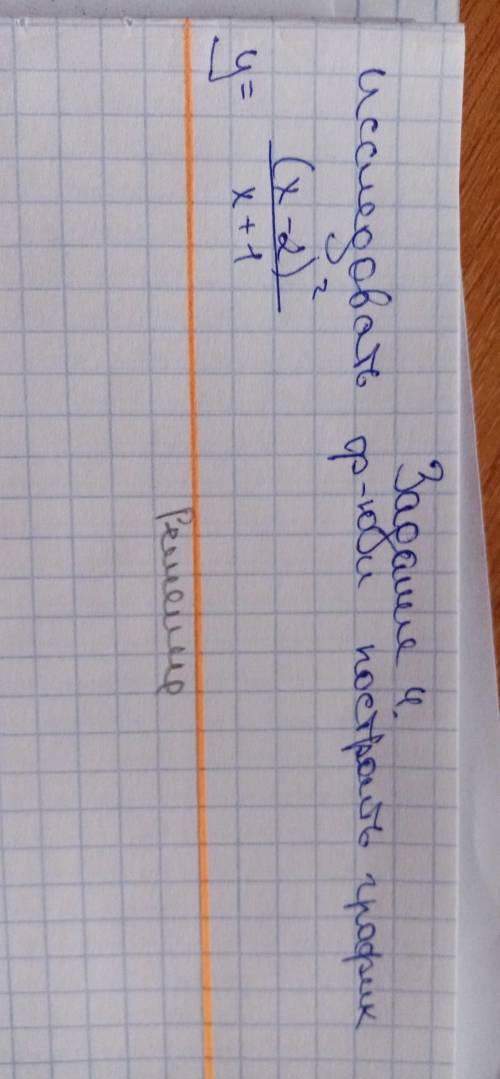 Задание 4.
исследовать ф-юби построить график
y = (x-2)²
x+1
Решение